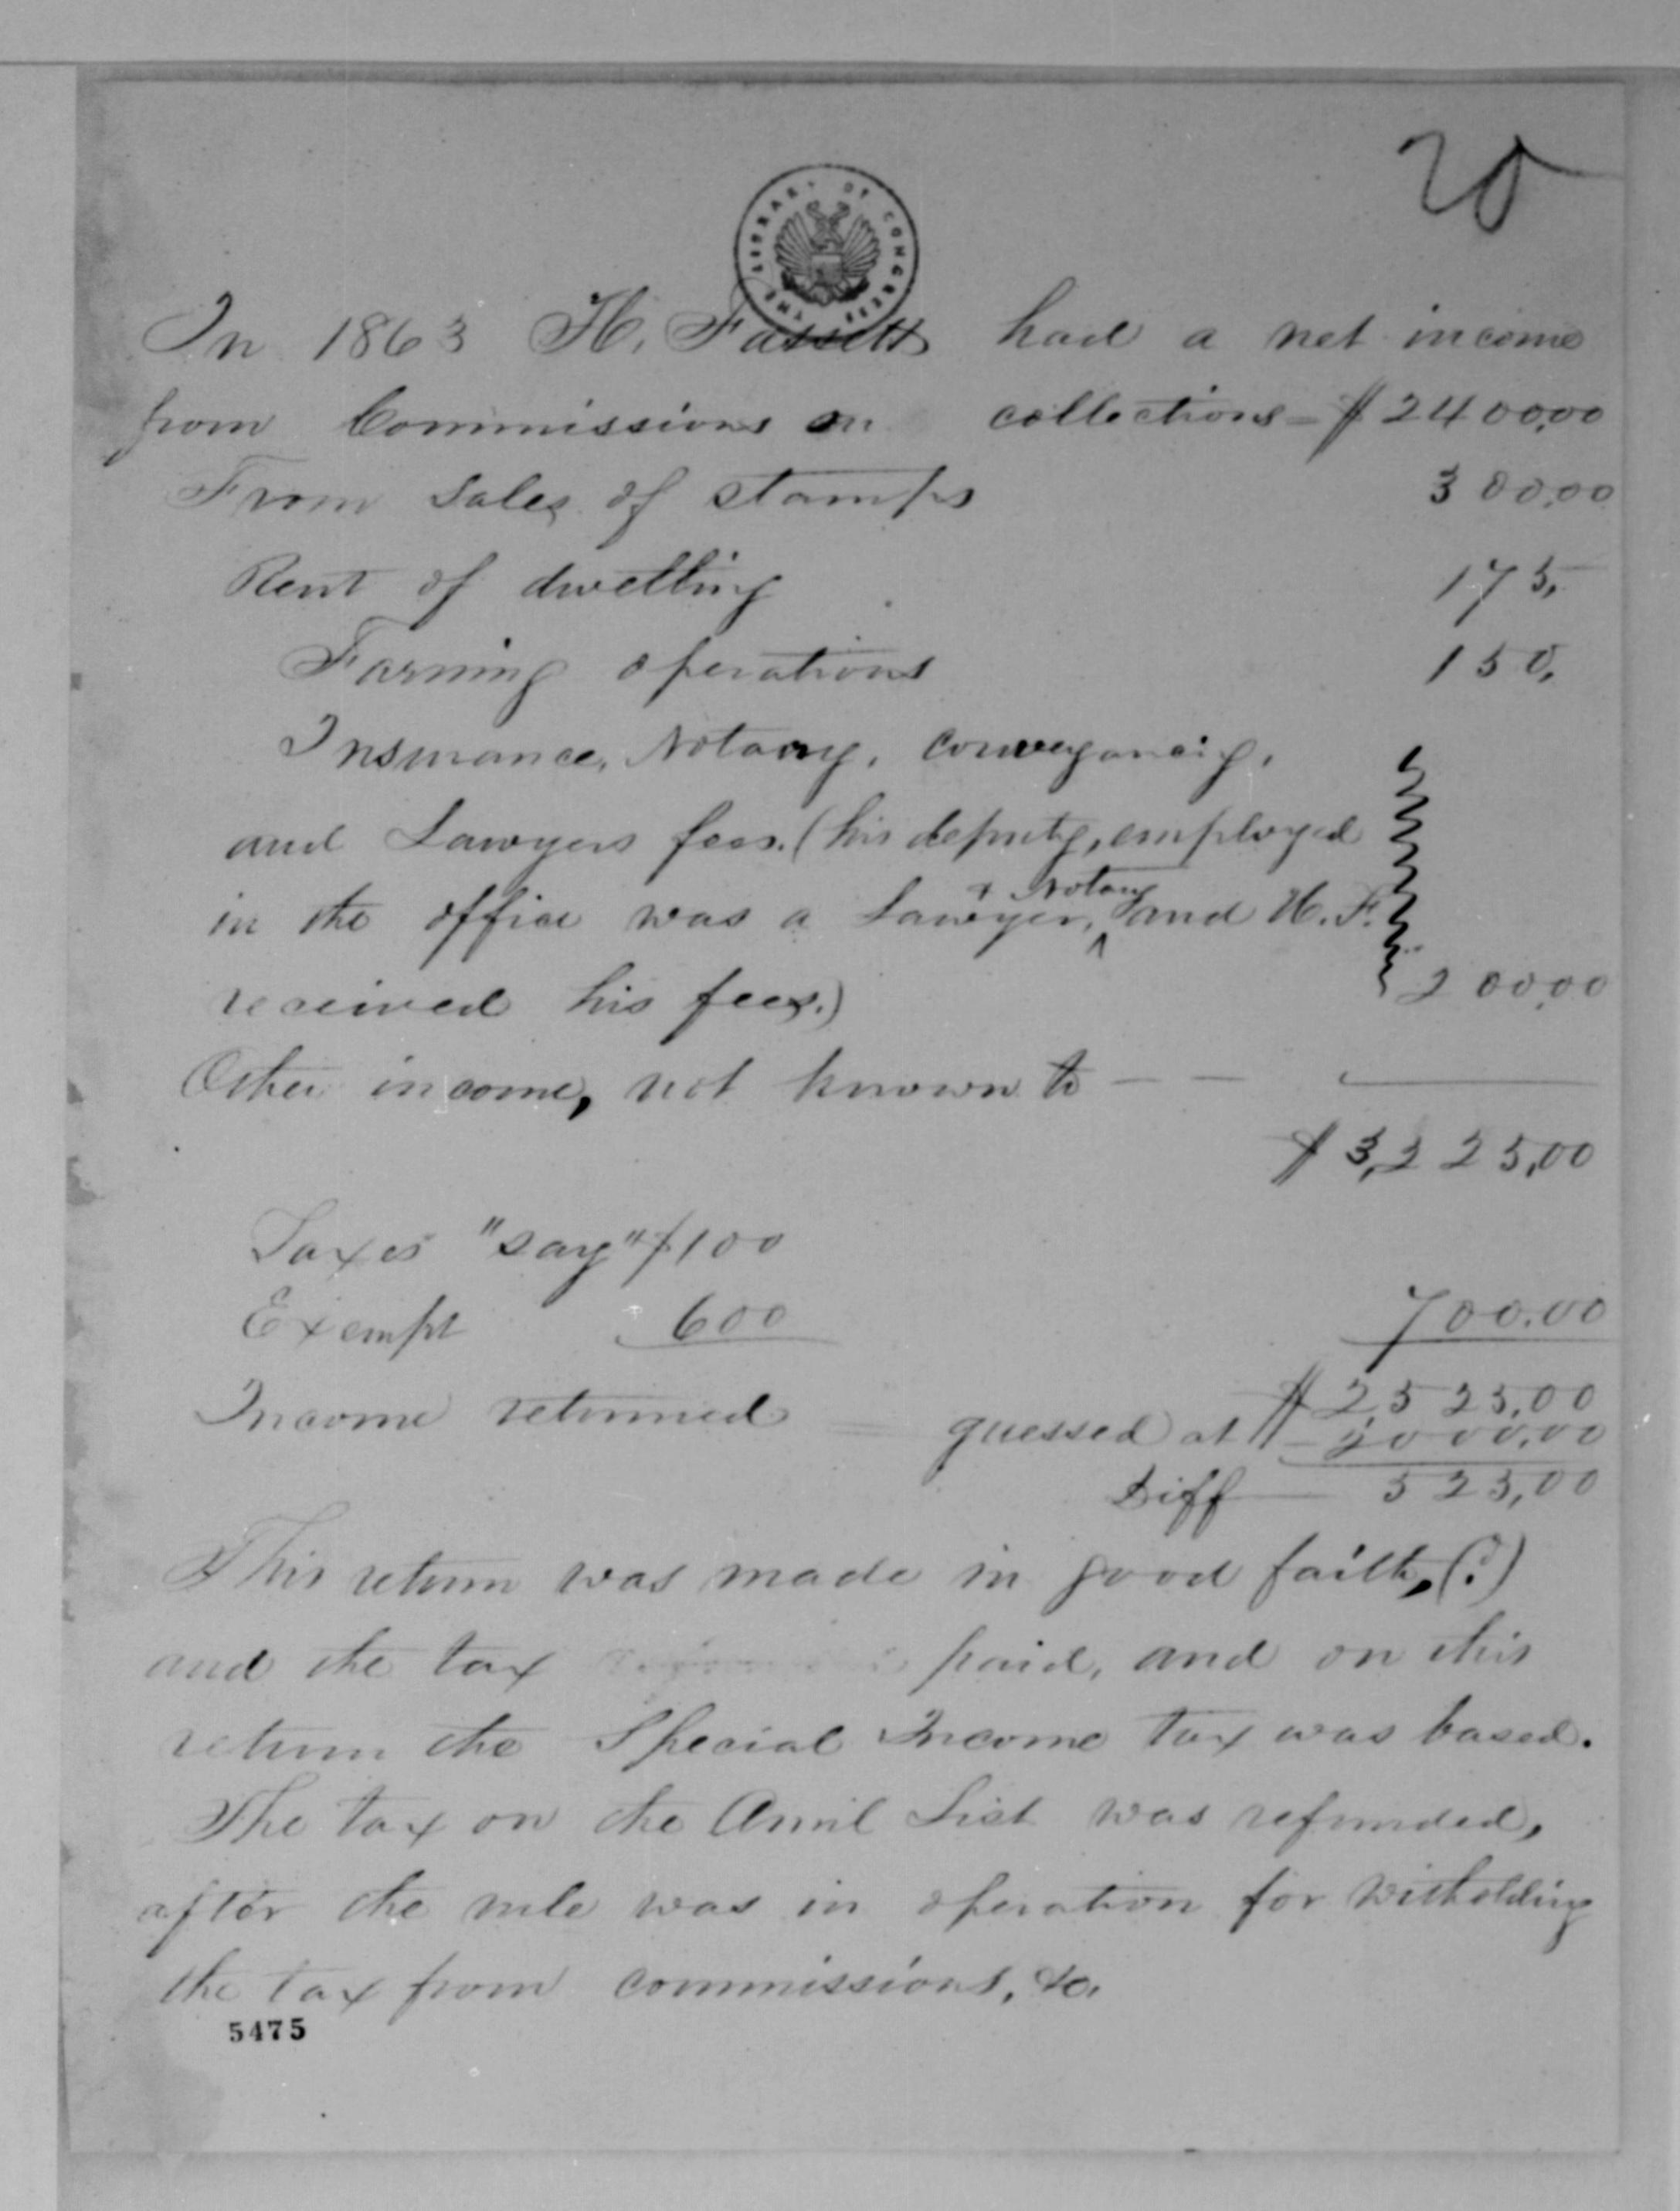 20
THE LIBRARY OF CONGRESS
In 1863 H. Fassett had a net income
from Commissions on collections - $2400,00
From Sales of stamps 300,00
Rent of dwelling 175,
Farming operations 150,
Insurance, Notary, conveyancig,
and Lawyers fees. (his deputy, employed
in the office was a Lawyer, + Notary and H. F.
received his fees.) 200,00
Other income, not known to — —
$3,225,00
Taxes "say" $100
Exempt 600 700.00
$2,525,00
Income returned = guessed at $ 2000,00
Diff — 525,00
This return was made in good faith, (?)
and the tax paid, and on this
return the Special Income tax was based.
The tax on the Annl List was refunded,
after the rule was in operation for witholding
the tax from commissions, &c.
5475